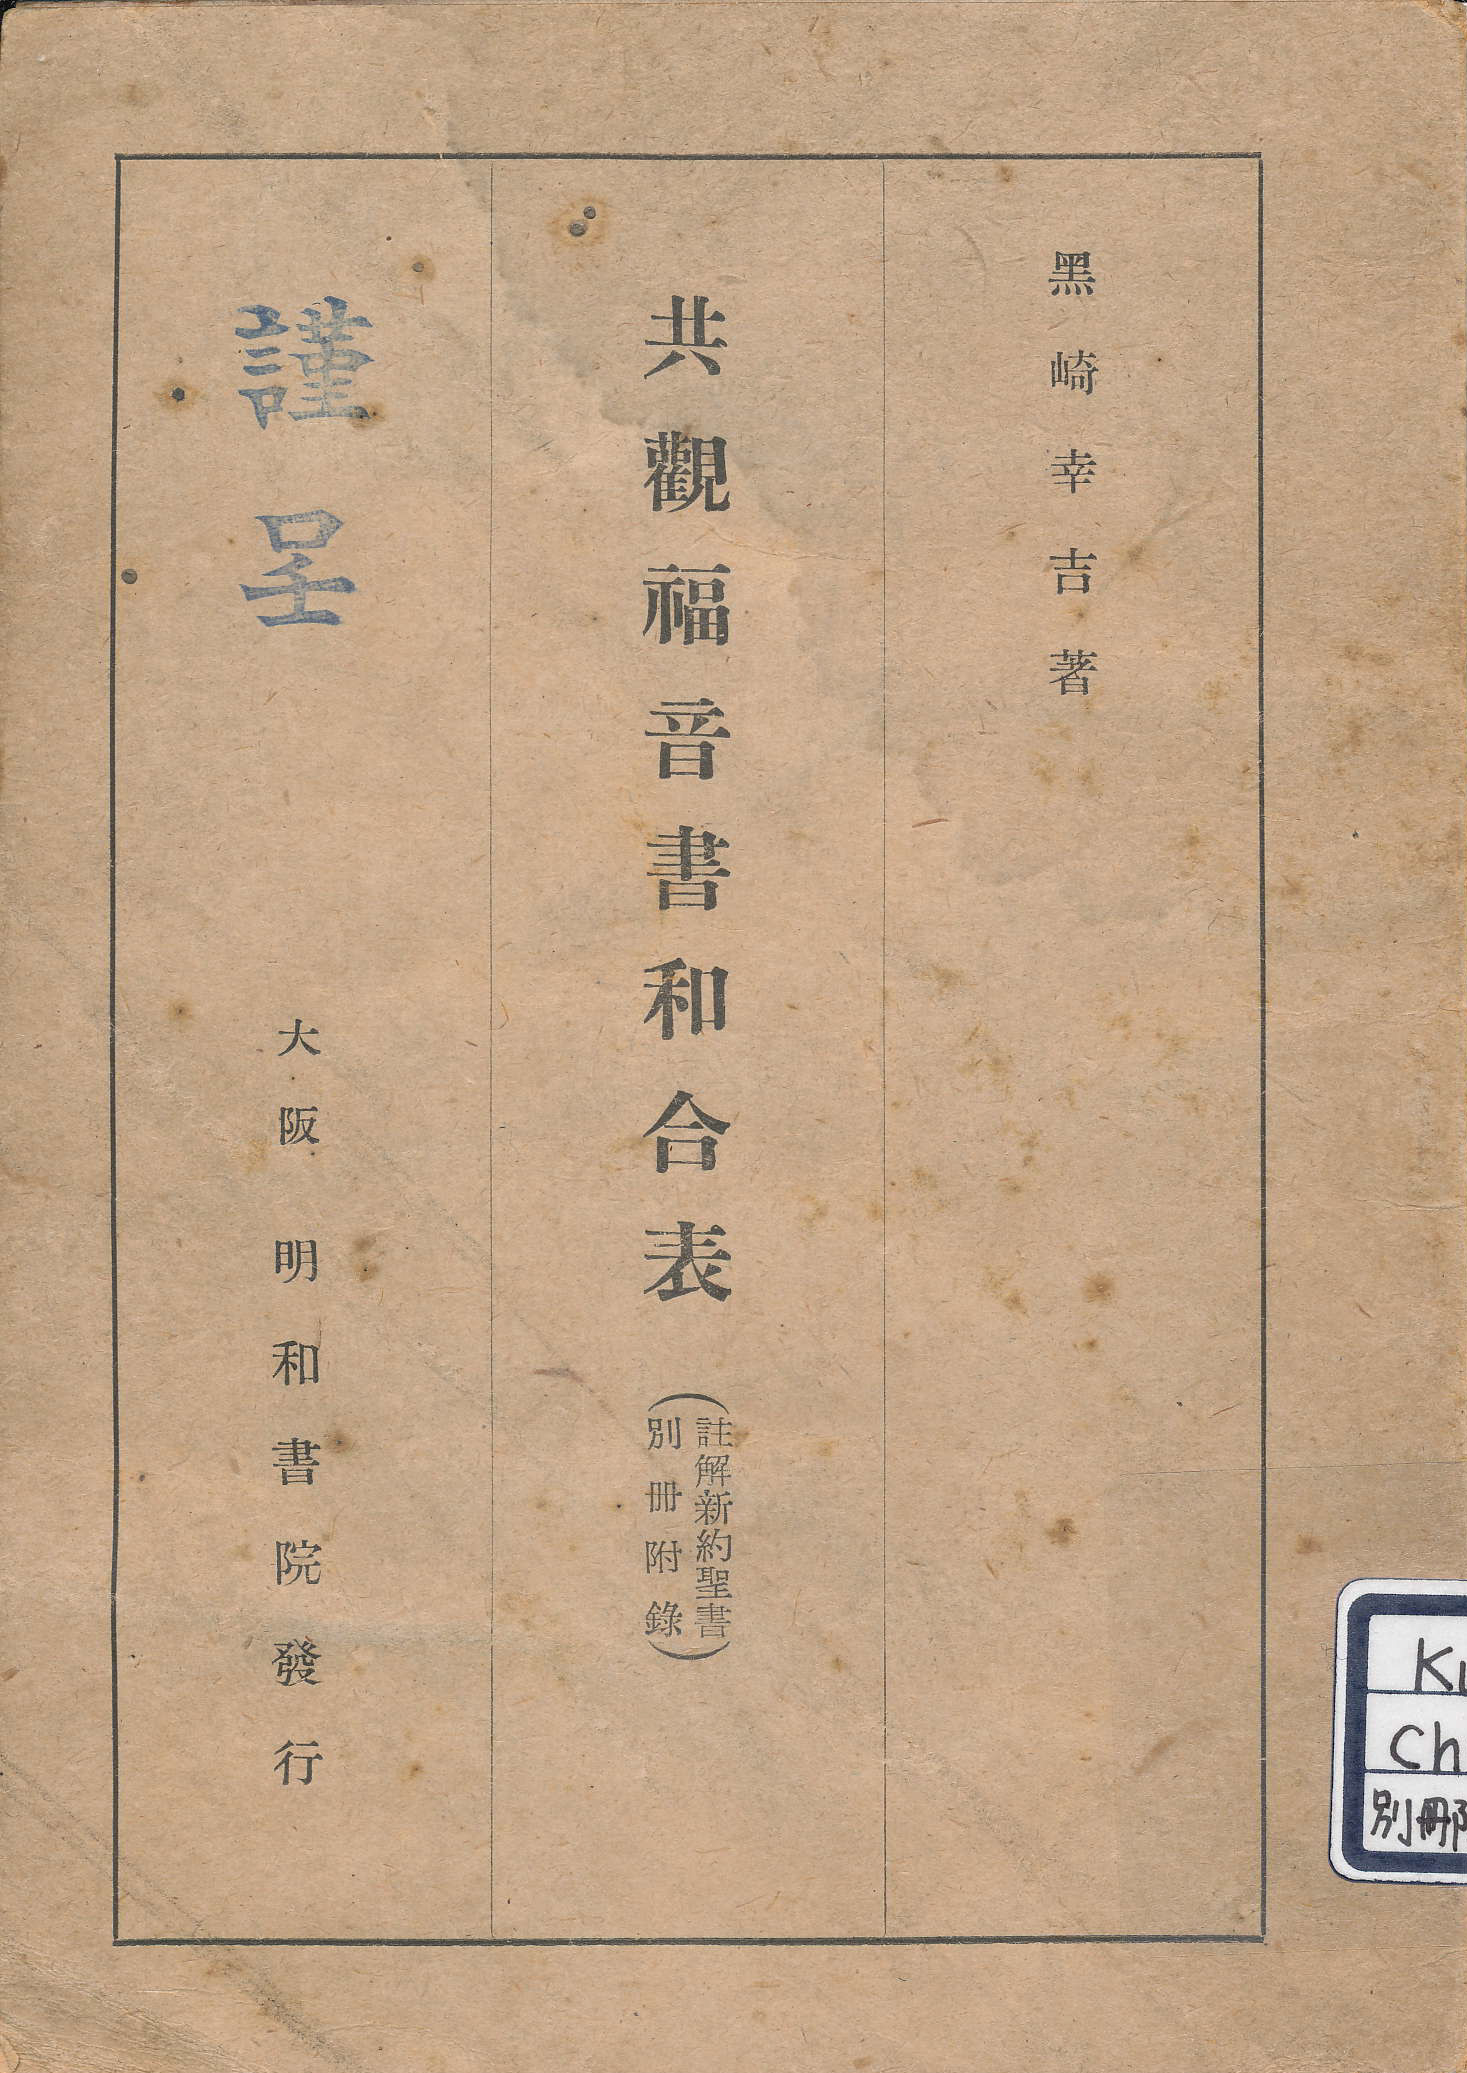 黑崎幸吉著
共觀福音書和合表
(註解新約聖書
別冊附錄)
謹呈
大阪 明和書院發行
Ku
Ch
別冊附